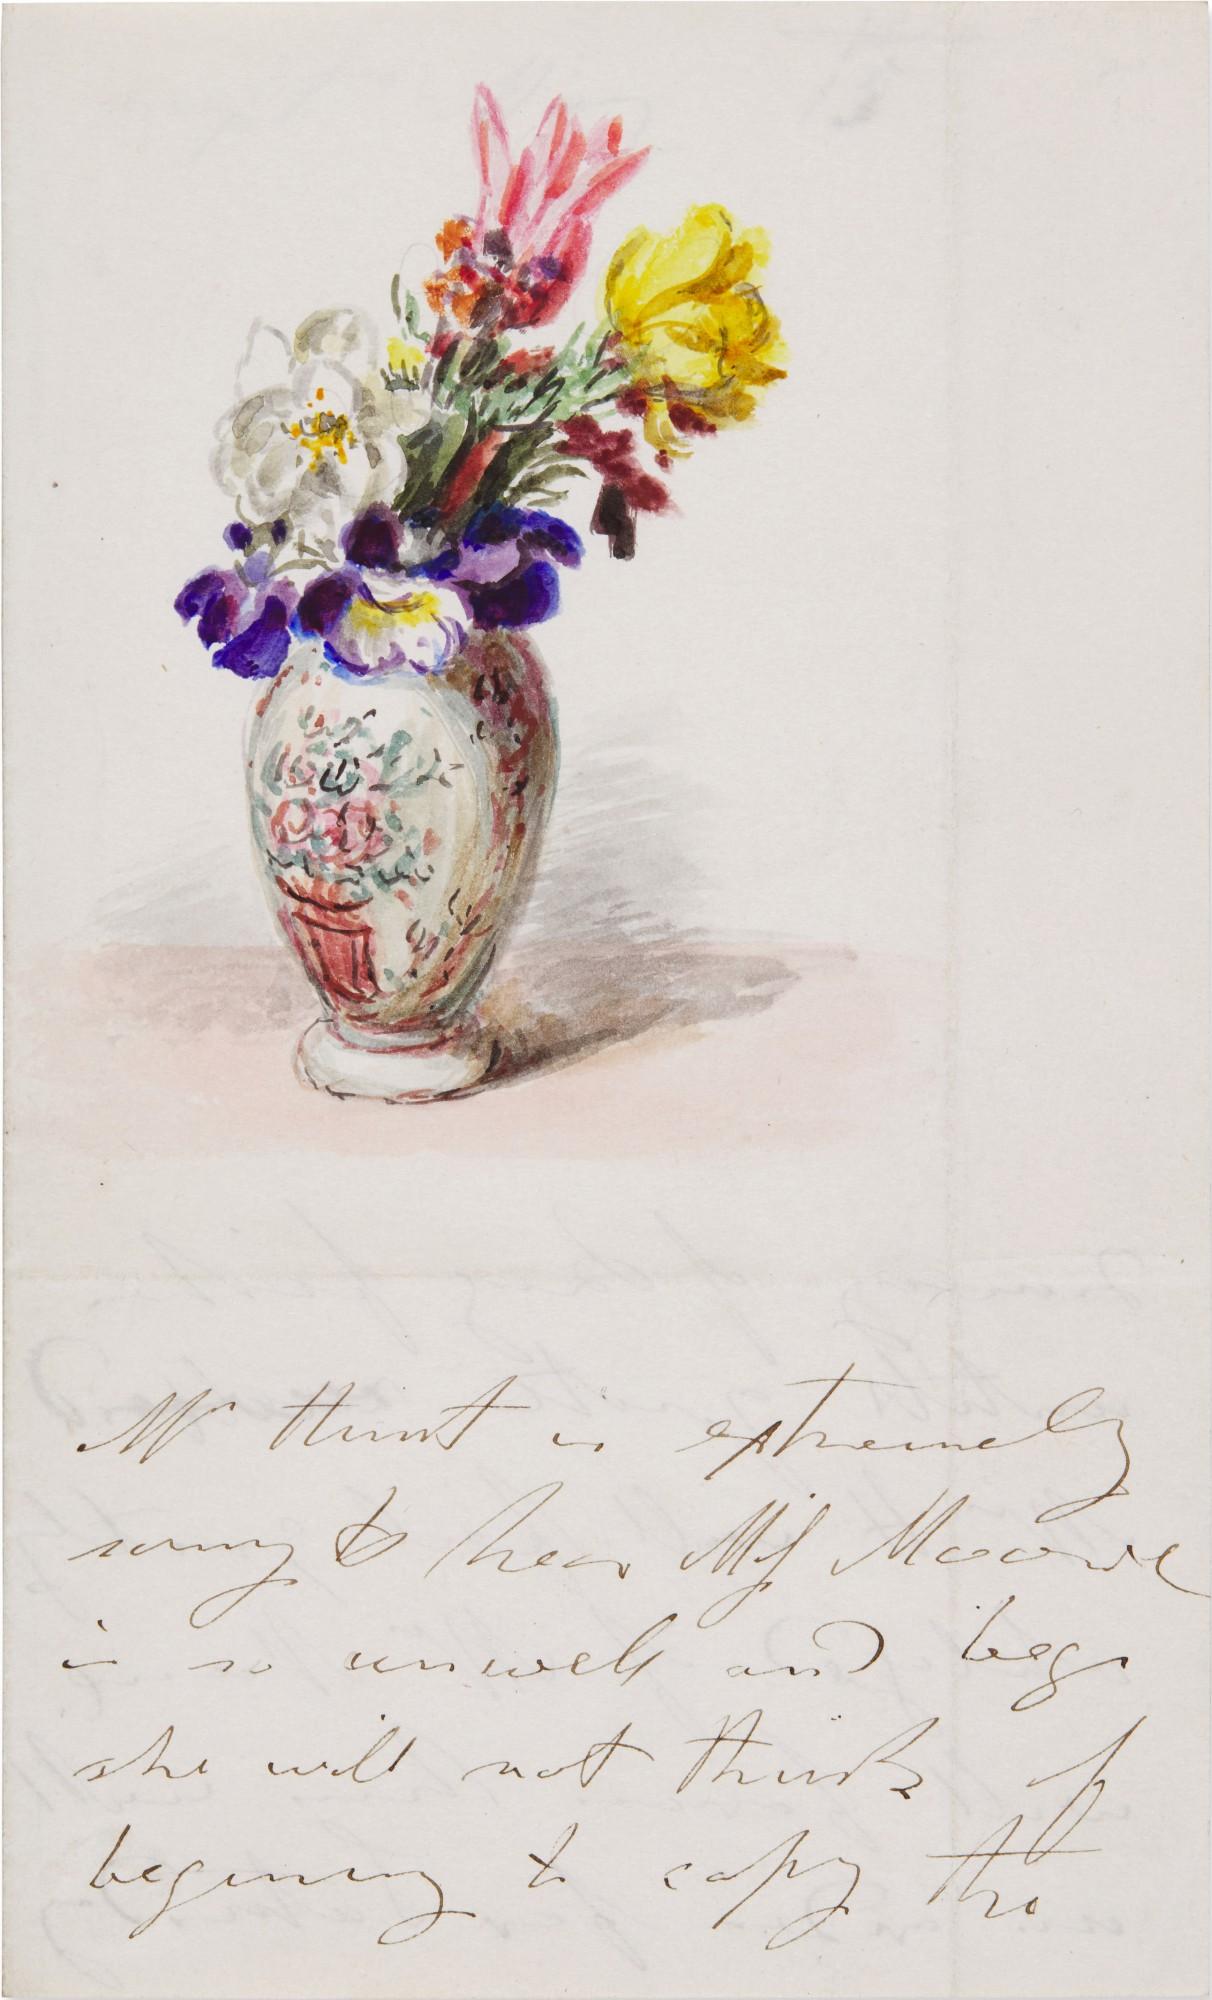 Mr Hunt is extremely
sorry to hear Miss Moore
is so unwell and begs
she will not think of
begining to copy the